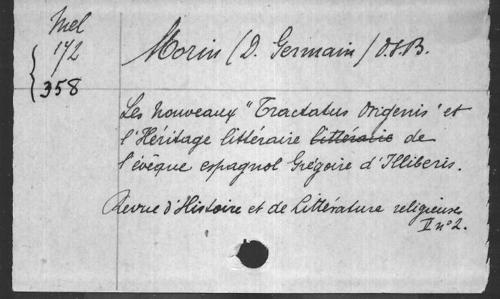 Mel
172
358
Morin (D. Germain) O.S.B.
Les nouveaux "Tractatus Origenis" et
l'Héritage littéraire littéraire de
l'évêque espagnol Grégoire d'Illiberis.
Revue d'Histoire et de Littérature religieuse
II n° 2.